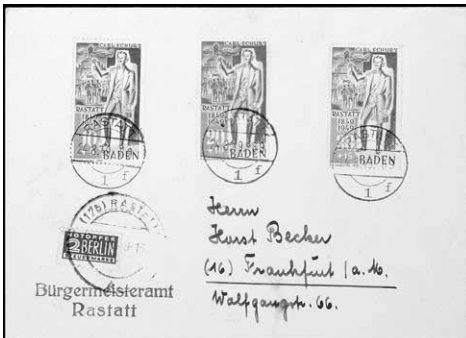 CARL SCHURZ
RASTATT
1849
1949
BADEN
CARL SCHURZ
RASTATT
1849
1949
BADEN
CARL SCHURZ
RASTATT
1849
1949
BADEN
1 f
1 f
1 f
(17b) RASTATT
NOTOPFER
2 BERLIN
STEUERMARKE
Bürgermeisteramt
Rastatt
Herrn
Horst Becker
(16) Frankfurt / a. M.
Wolfgangstr. 66.